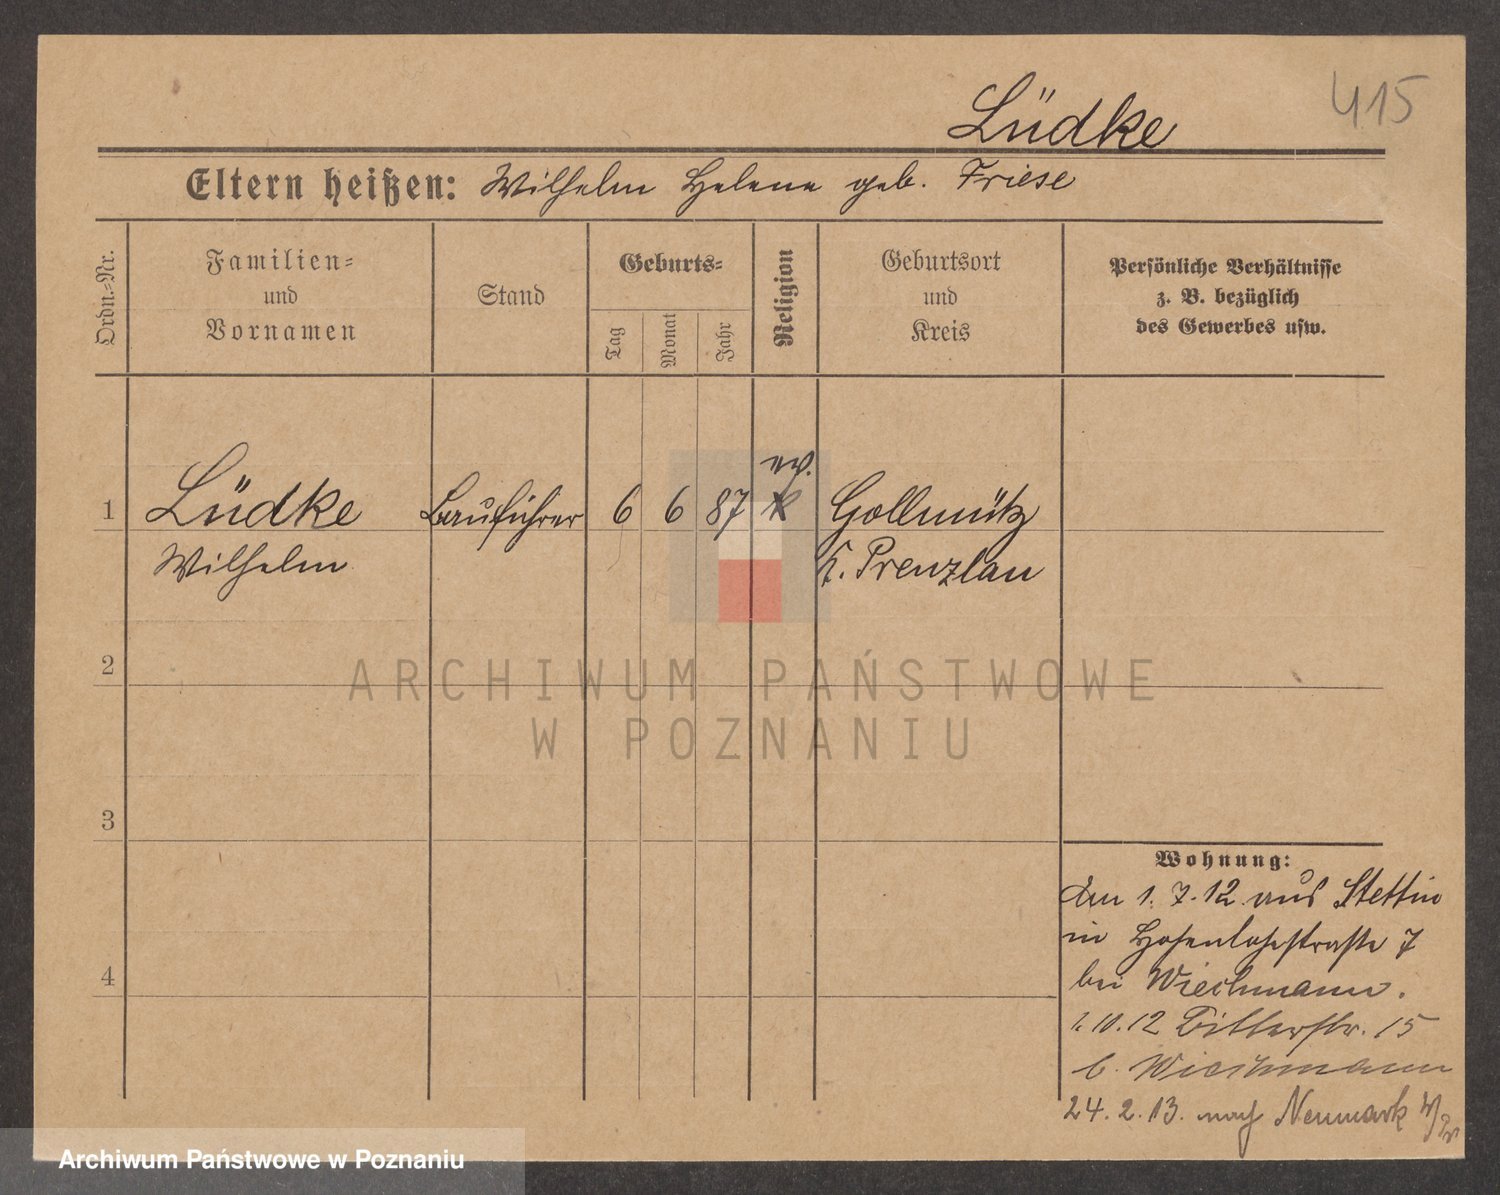 415
Lüdke
Eltern heißen: Wilhelm Helene geb. Friese
Ordn.-Nr.
Familien-
und
Vornamen
Stand
Geburts-
Tag
Monat
Jahr
Religion
Geburtsort
und
Kreis
Persönliche Verhältnisse
z. B. bezüglich
des Gewerbes usw.
ev.
1 Lüdke Bauführer 6 6 87 Gollmütz
Wilhelm K. Prenzlau
2
3
4
ARCHIWUM PAŃSTWOWE
W POZNANIU
Wohnung:
Am 1. 7. 12 aus Stettin
in Hohenlohestraße 7
bei Wiechmann.
1.10.12 Bitterstr. 15
b. Wiechmann
24. 2. 13. nach Neumark
Archiwum Państwowe w Poznaniu